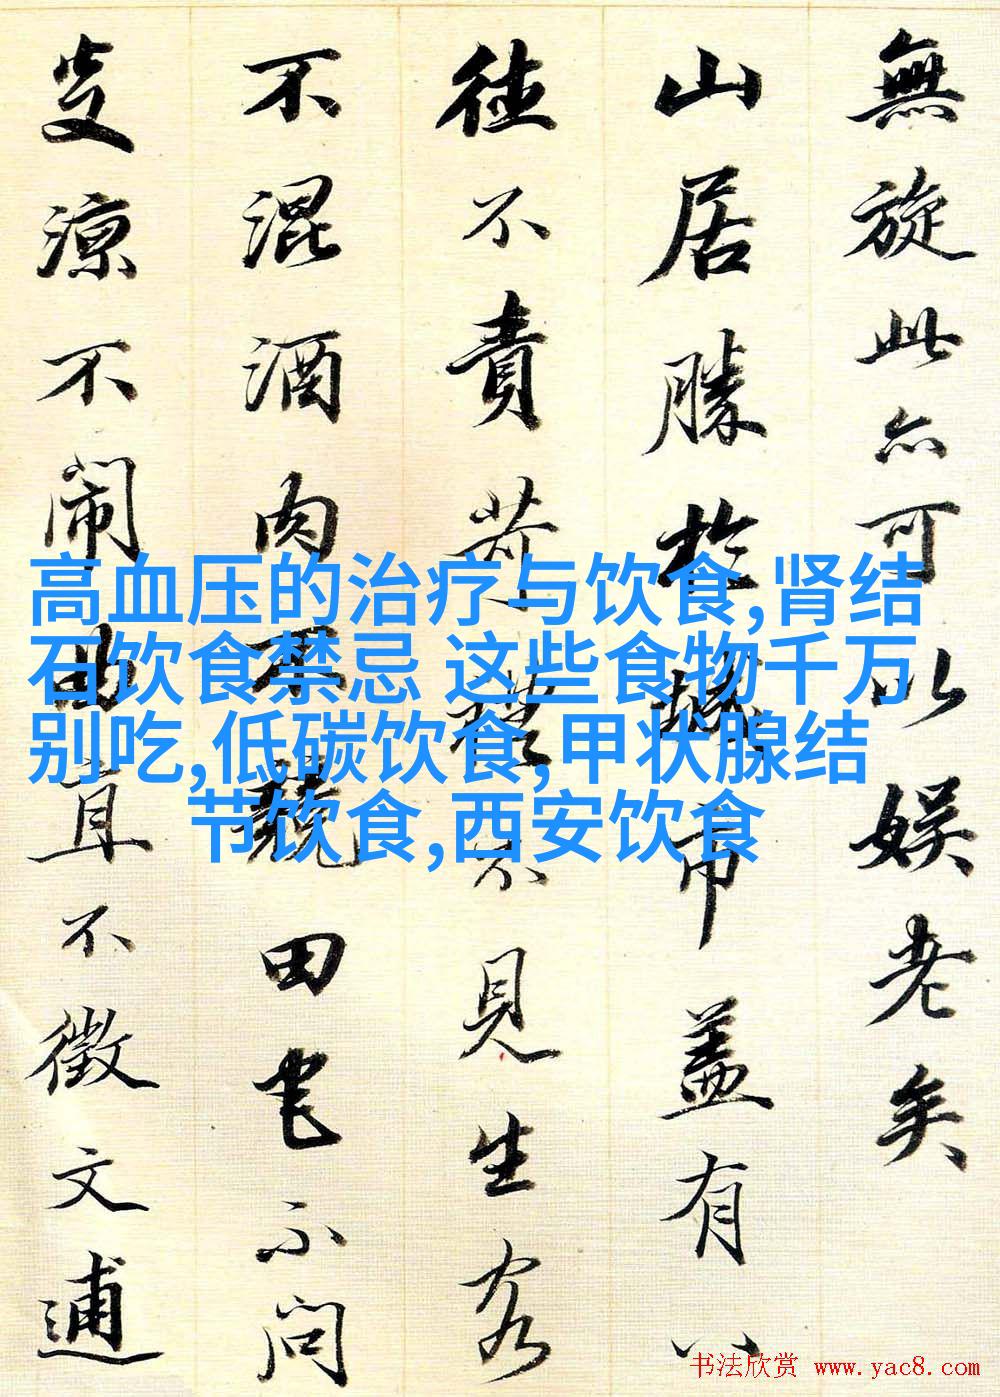 無旋此亦可以娱老矣
山居勝於城市盖有八
徃不責苛禮不見生客
不混酒肉不競田宅不問
炎凉不闹曲直不徵文逋
高血压的治疗与饮食,肾结
石饮食禁忌 这些食物千万
别吃,低碳饮食,甲状腺结
节饮食,西安饮食
书法欣赏 www.yac8.com